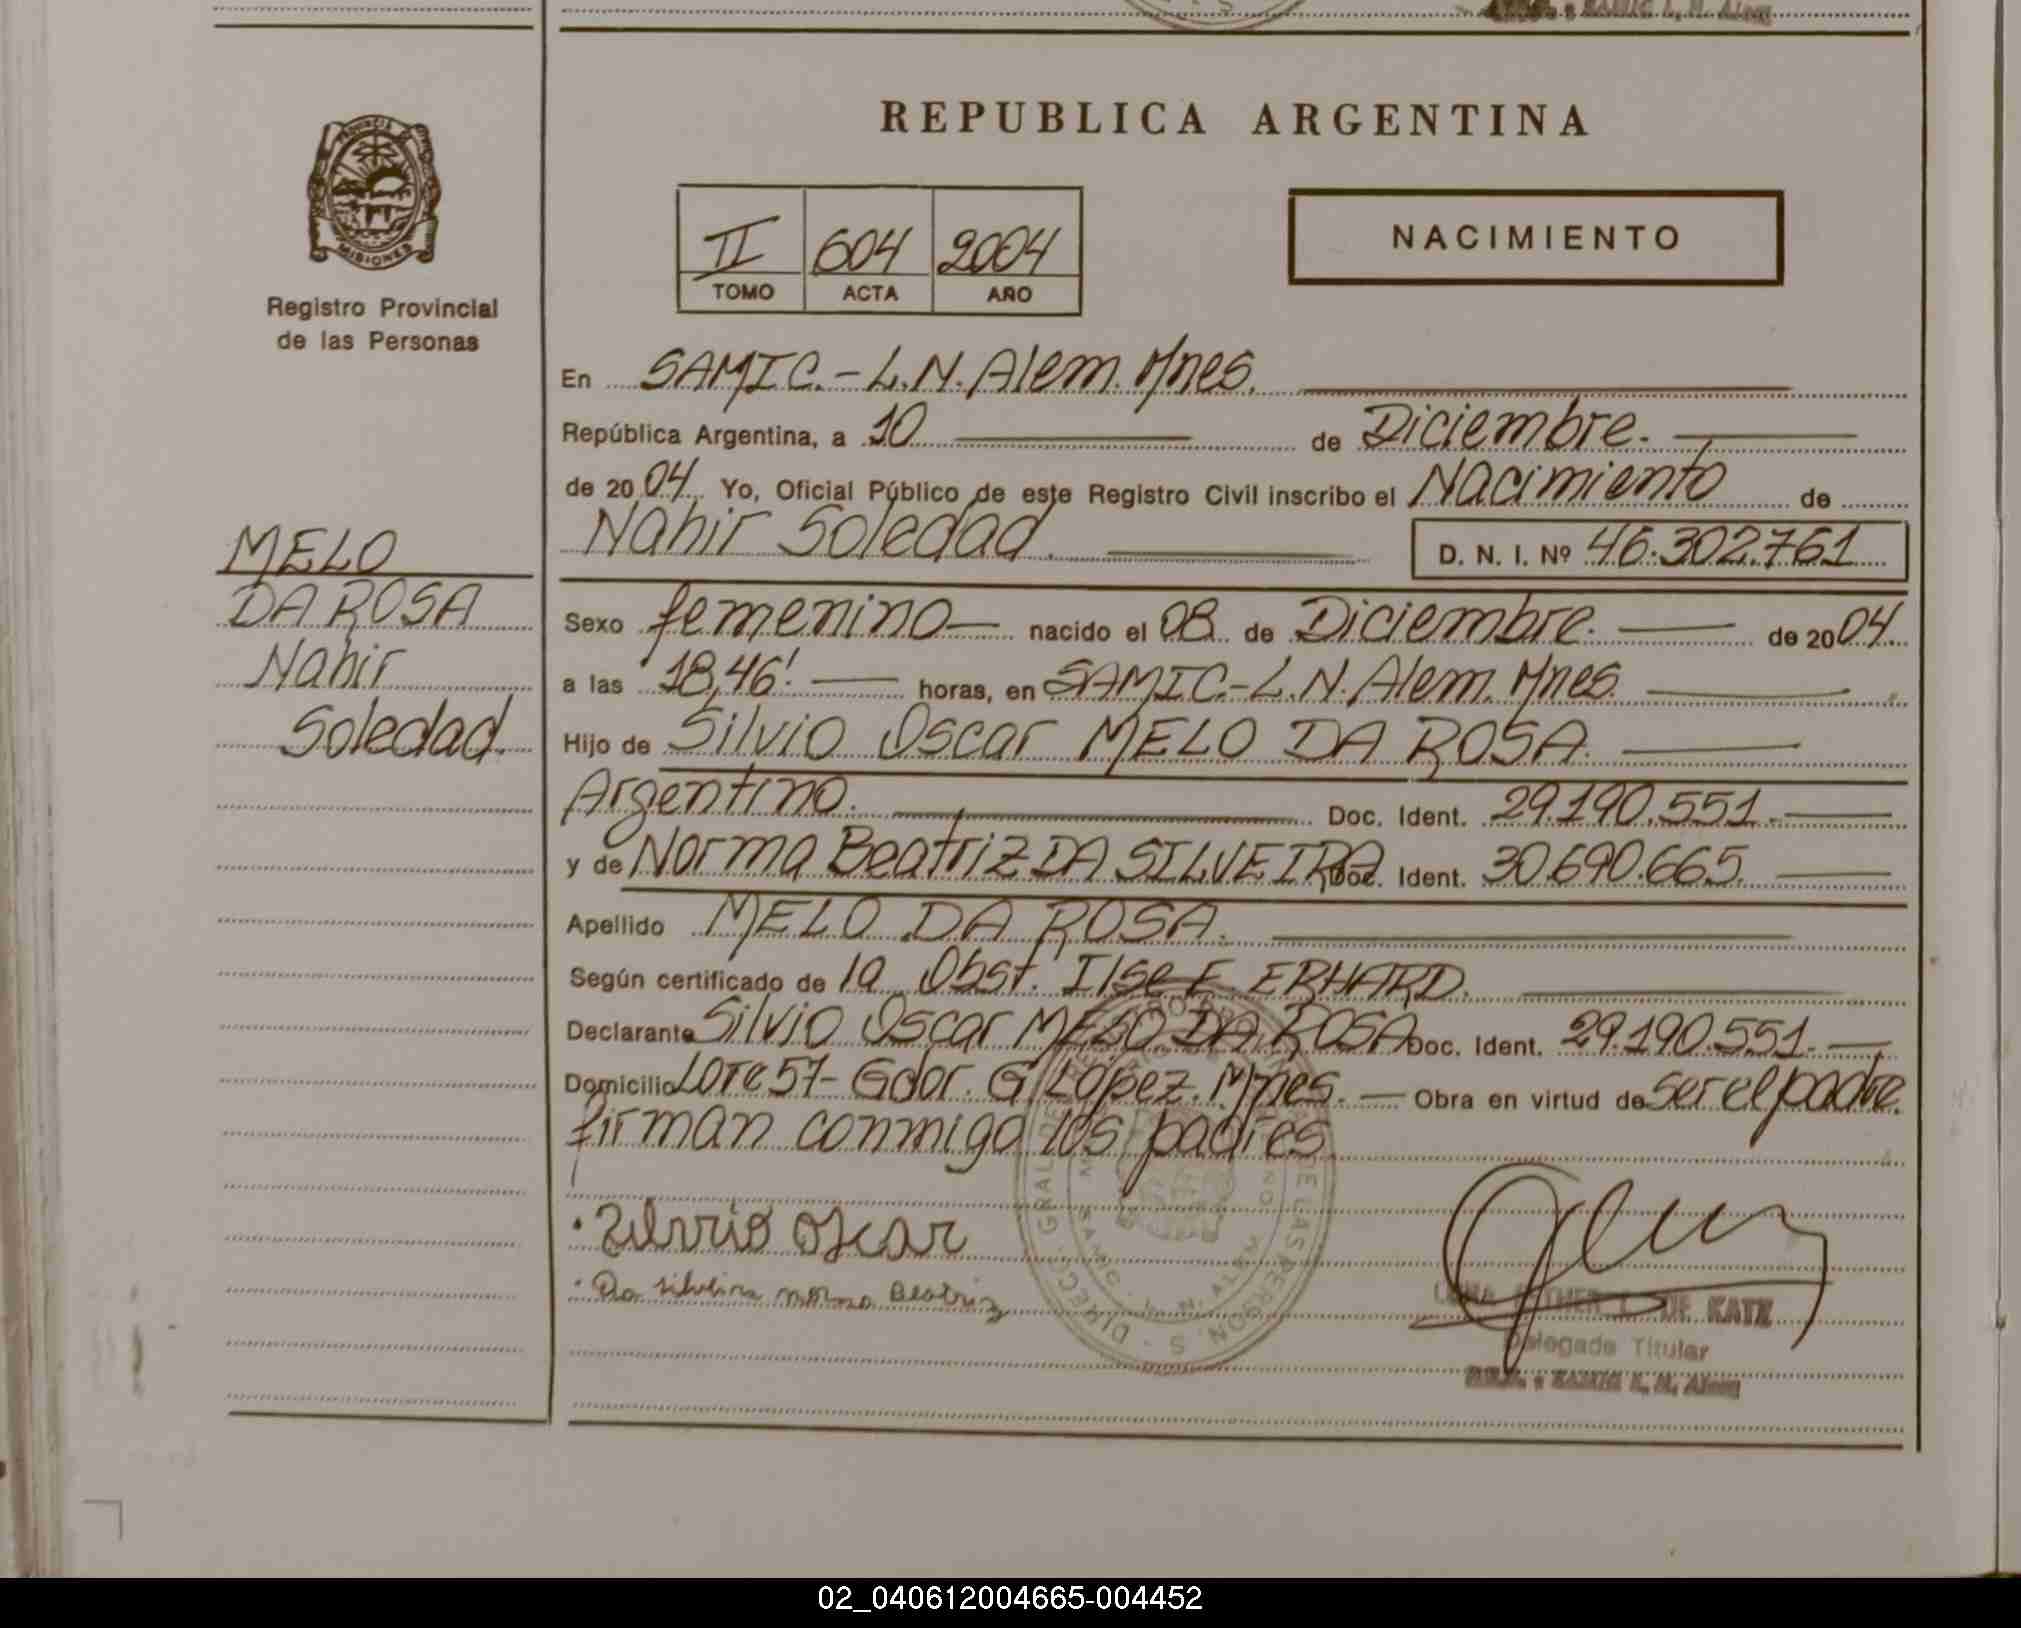 REPUBLICA ARGENTINA
PROVINCIA DE
MISIONES
Registro Provincial
de las Personas
II 604 2004
TOMO ACTA AÑO
NACIMIENTO
En SAMIC.-L.N.Alem.Mnes.
República Argentina, a 10 de Diciembre.
de 2004 Yo, Oficial Público de este Registro Civil inscribo el Nacimiento de
Nahir Soledad. D. N. I. Nº 46.302.761
MELO
DA ROSA
Nahir
Soledad.
Sexo femenino nacido el 08 de Diciembre. de 2004.
a las 18,46' horas, en SAMIC.-L.N.Alem.Mnes.
Hijo de Silvio Oscar MELO DA ROSA.
Argentino. Doc. Ident. 29.190.551.
y de Norma Beatriz DA SILVEIRA Doc. Ident. 30.690.665.
Apellido MELO DA ROSA.
Según certificado de la Obst. Ilse E ERHARD.
Declarante Silvio Oscar MELO DA ROSA Doc. Ident. 29.190.551.
Domicilio Lote 57- Gdor. G. López. Mnes. Obra en virtud de ser el padre.
firman conmigo los padres
Silvrio Oscar
Da silveira norma Beatriz
DE KATZ
Delegada Titular
SAMIC L. N. Alem
02_040612004665-004452